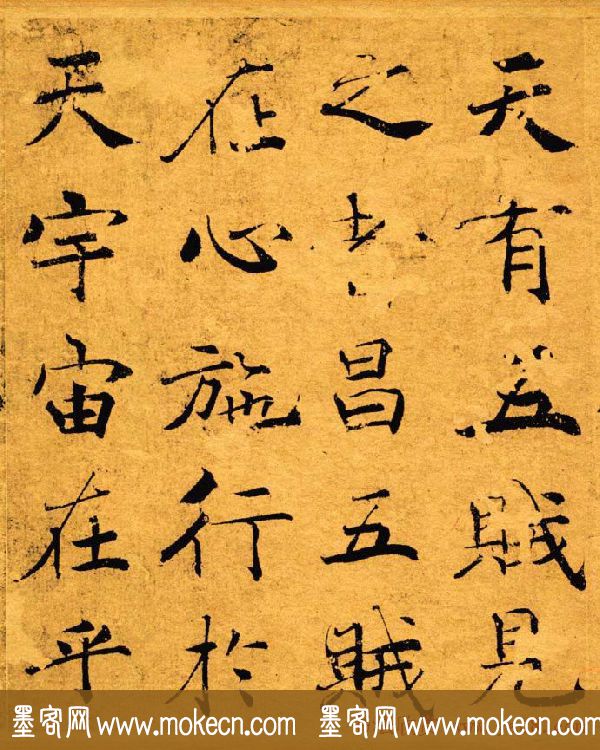 天有五賊見
之者昌五賊
在心施行於
天宇宙在乎
墨客网 www.mokecn.com 墨客网 www.mokecn.com